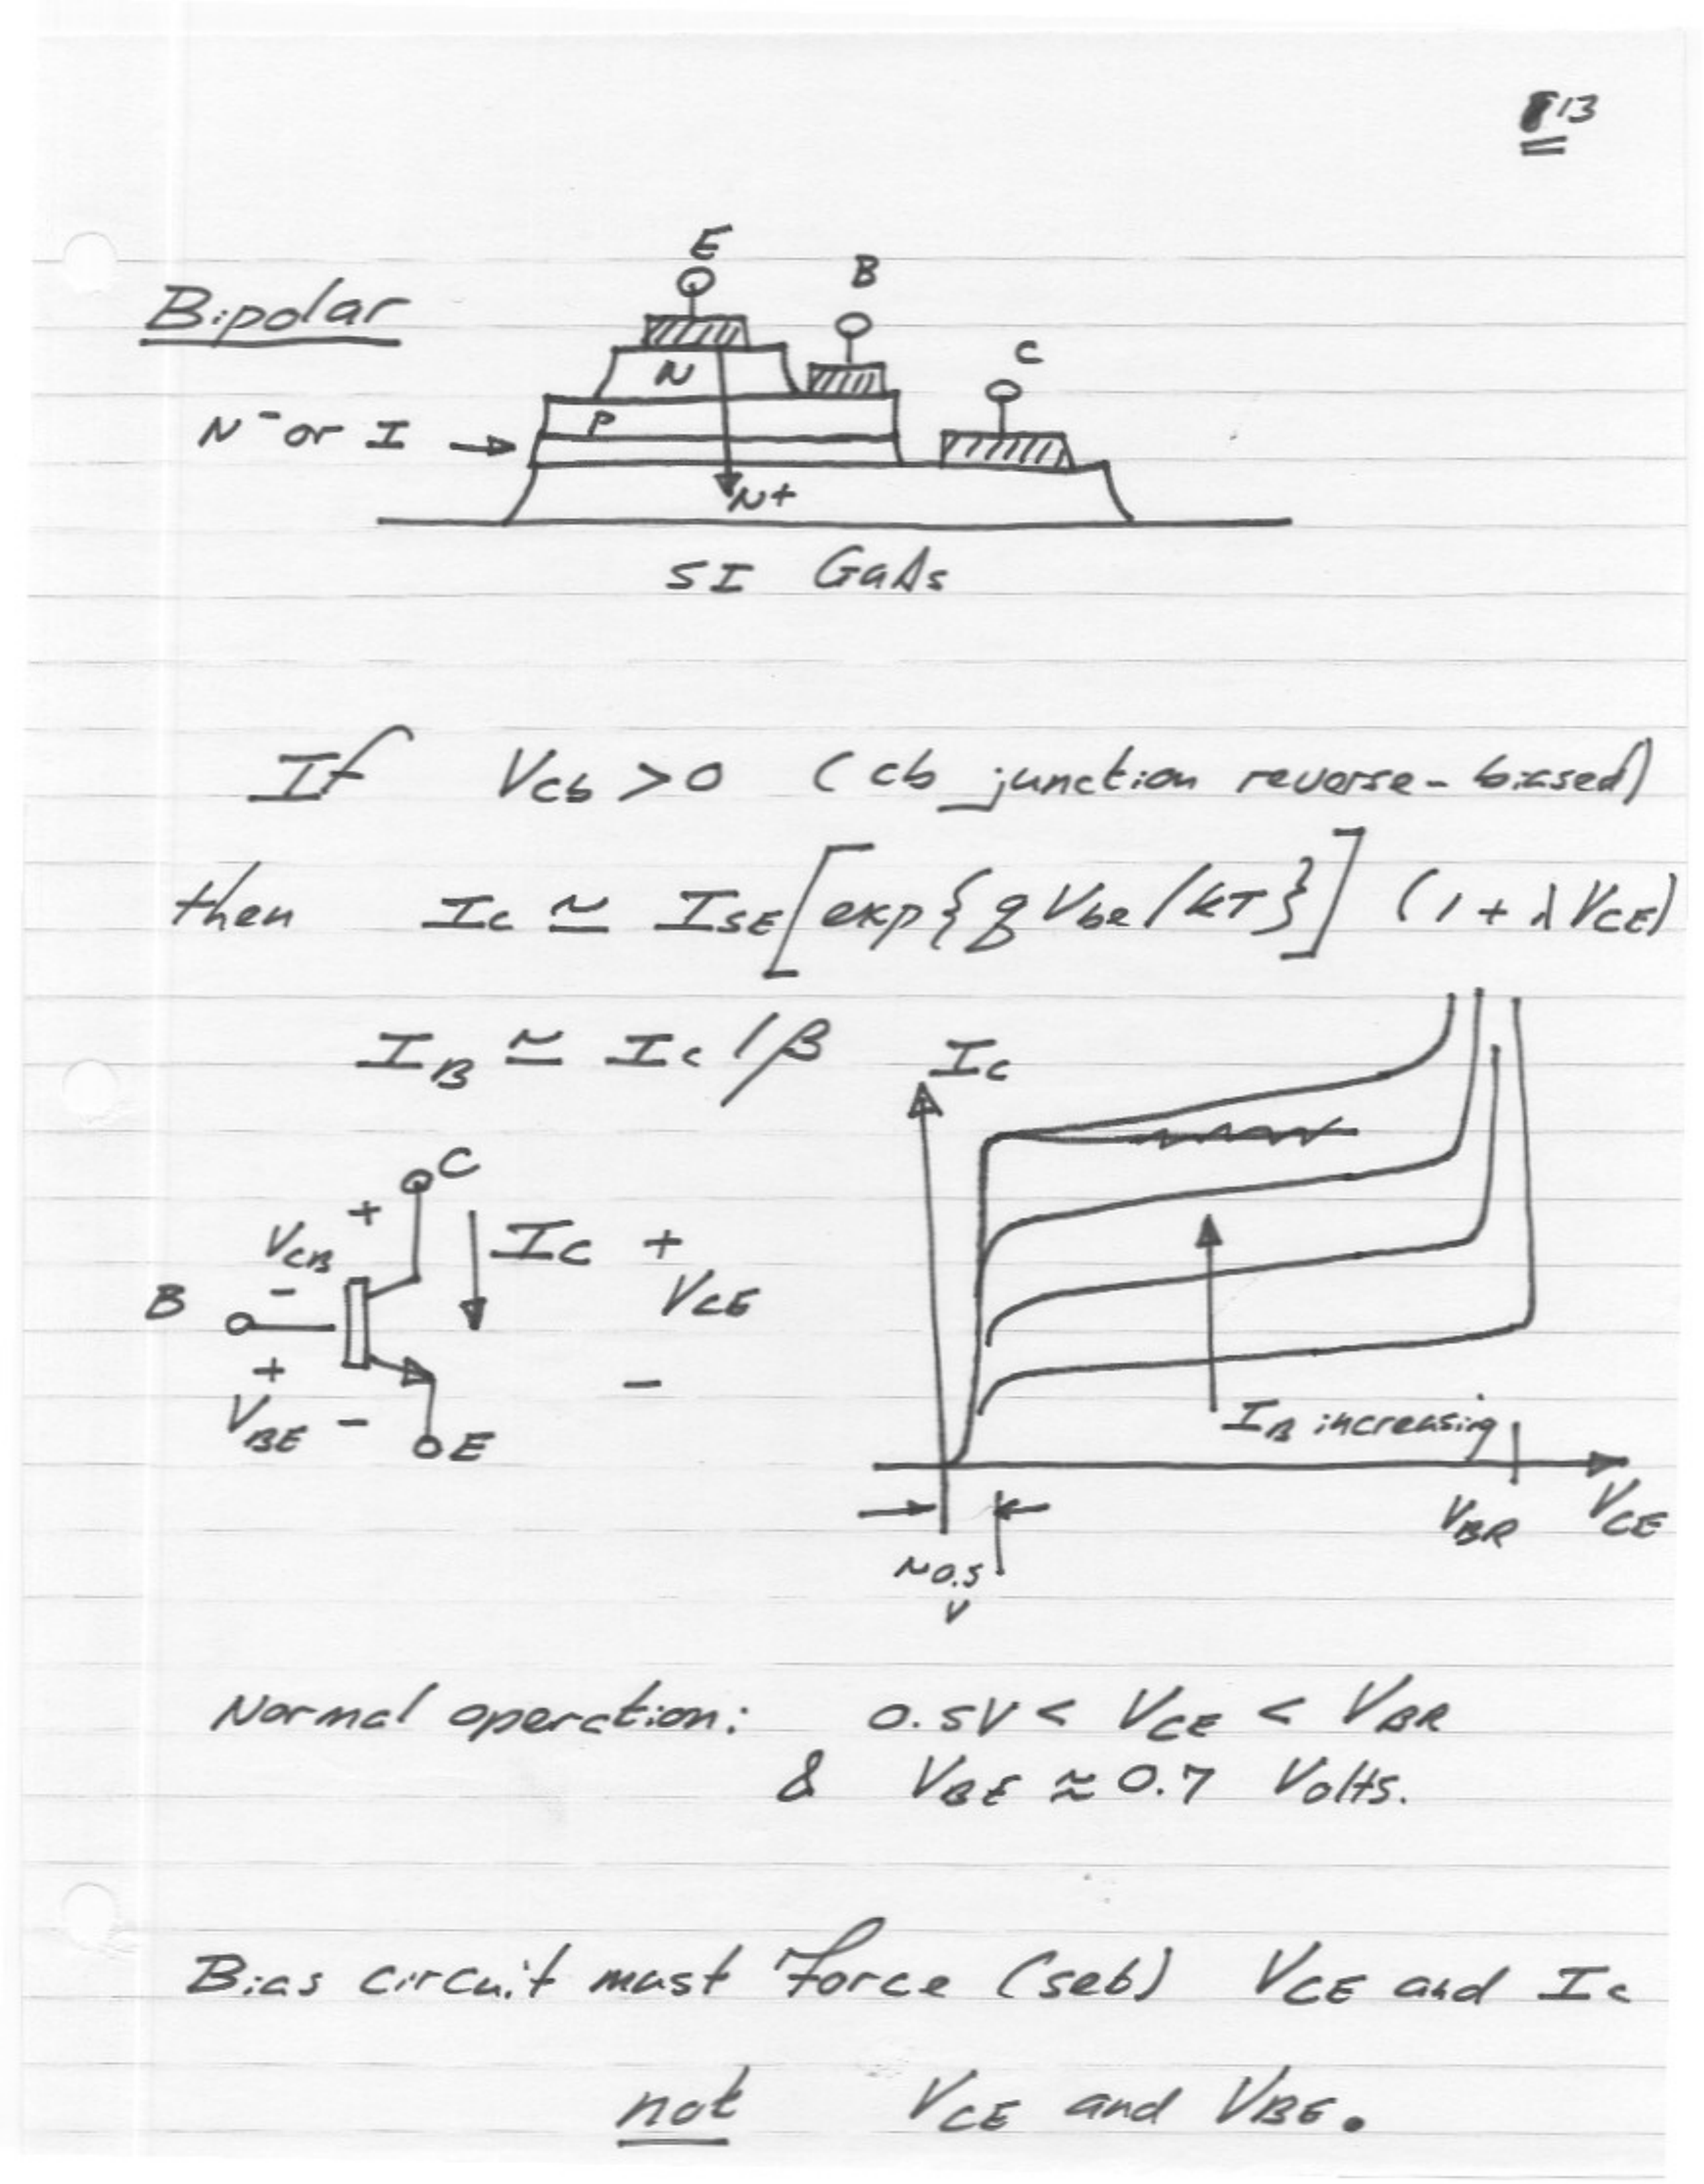 13
E
B
Bipolar
C
N
N⁻ or I →
P
N+
SI GaAs
If Vcb > 0 (cb junction reverse-biased)
then Ic ≃ ISE [exp{qVbe/kT}] (1 + λVCE)
IB ≃ Ic/β
Ic
C
+
VCB
Ic +
-
VCE
B
+
-
VBE -
IB increasing
E
VBR
VCE
~0.5
V
Normal operation: 0.5V < VCE < VBR
& VBE ≈ 0.7 Volts.
Bias circuit must force (seb) VCE and Ic
not VCE and VBE.